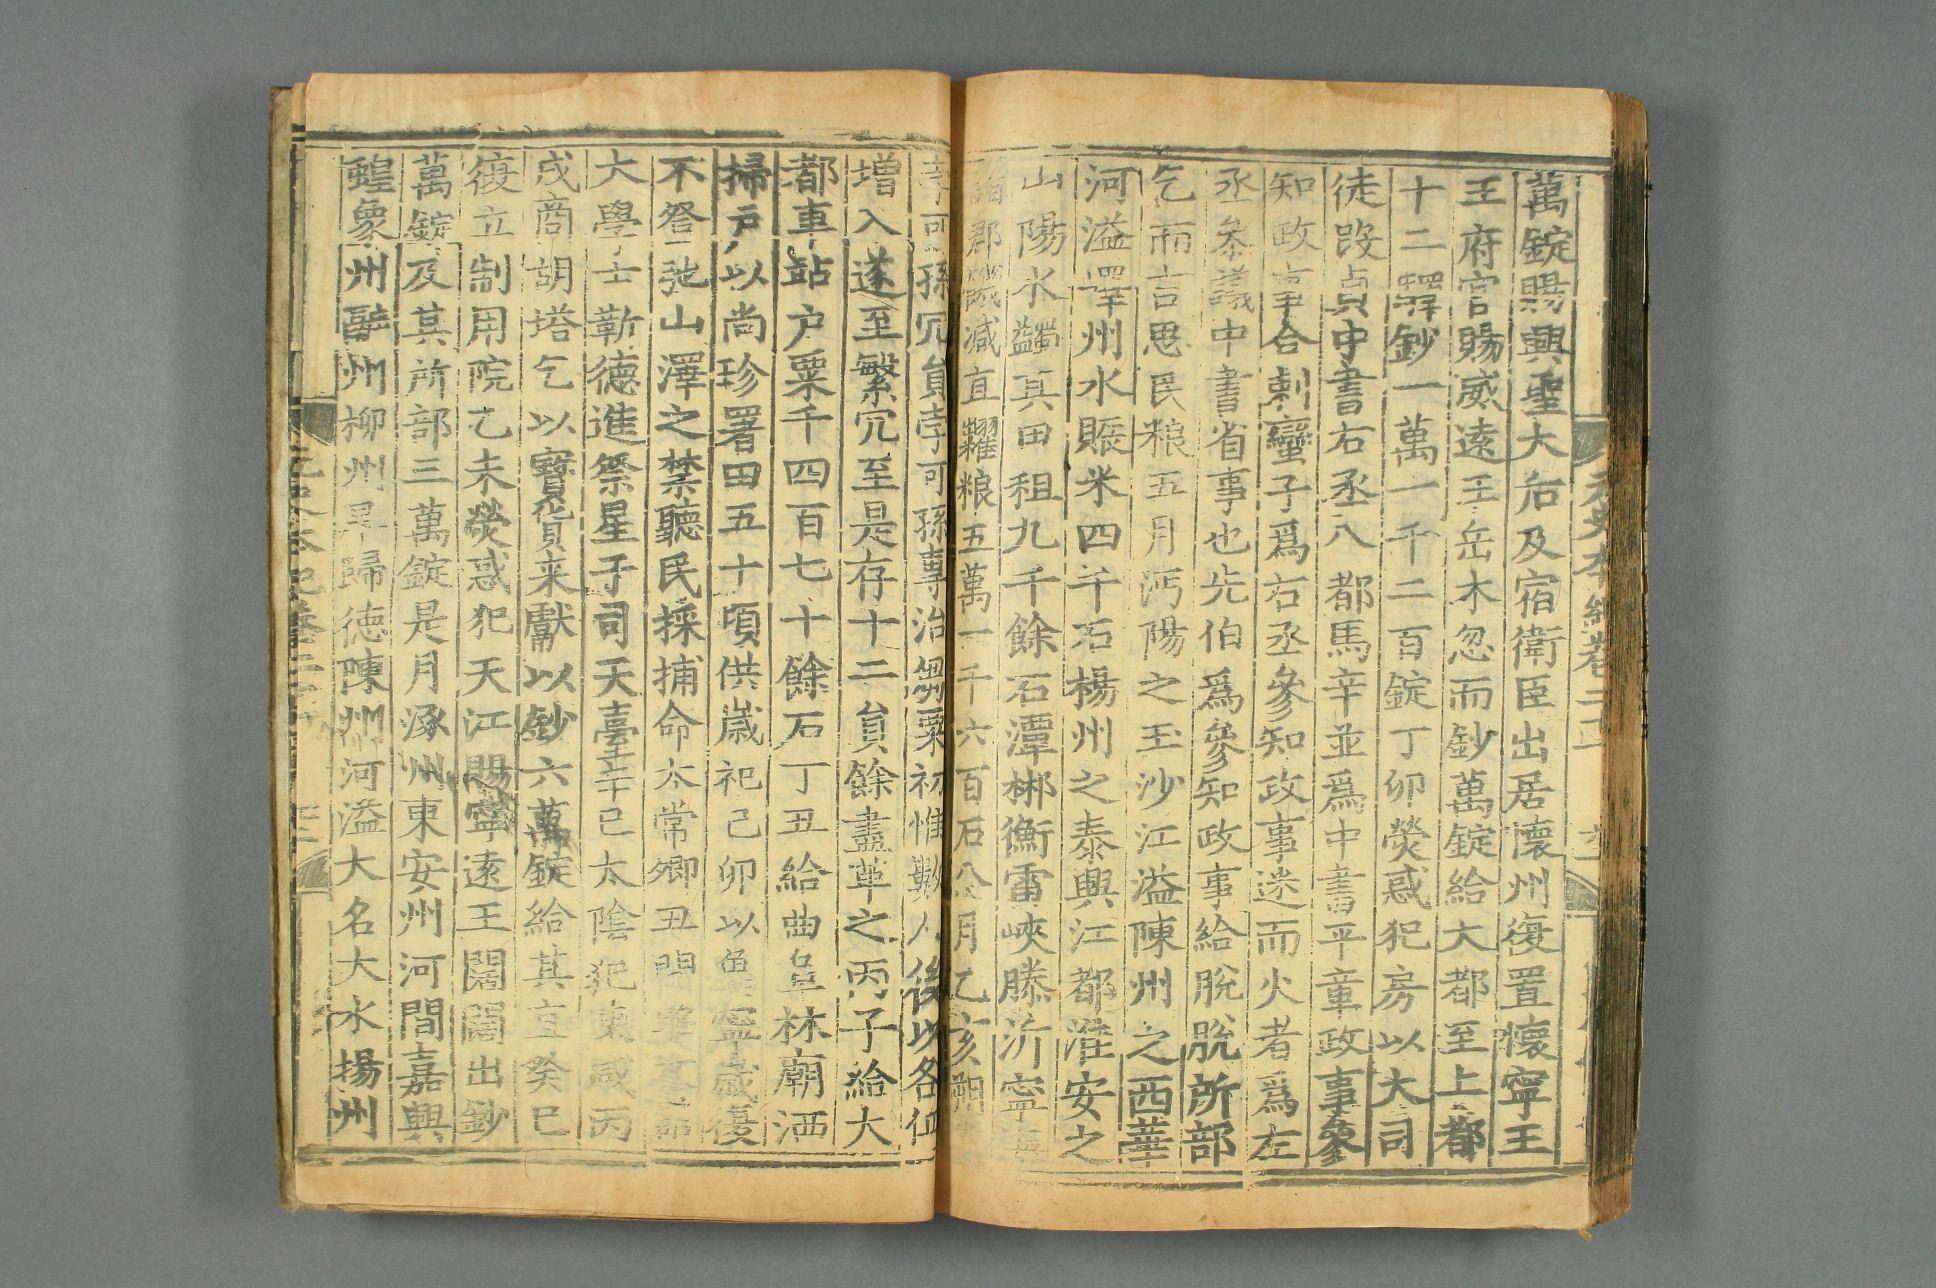 元史本紀卷二十一
萬錠賜興聖太后及宿衛臣出居懷州復置懷寧王
王府官賜威遠王岳木忽而鈔萬錠給大都至上都
十二驛鈔一萬一千二百錠丁卯熒惑犯房以大司
徒段貞中書右丞八都馬辛並爲中書平章政事參
知政事合剌蠻子爲右丞參知政事迷而火者爲左
丞參議中書省事也先伯爲參知政事給脫脫所部
乞而吉思民粮五月沔陽之玉沙江溢陳州之西華
河溢嶧州水賑米四千石楊州之泰興江都淮安之
山陽水蠲其田租九千餘石潭郴衡雷峽滕沂寧
郡饑減直糶粮五萬一千六百石八月乙亥朔
孛可孫冗員孛可孫專治芻粟初惟數人後以各位
增入遂至繁冗至是存十二員餘盡革之丙子給大
都車站户粟千四百七十餘石丁丑給曲阜林廟洒
掃户以尚珍署田五十頃供歲祀己卯以冀寧歲復
不登弛山澤之禁聽民採捕命太常卿丑閭
大學士靳德進祭星于司天臺辛巳太陰犯東咸丙
戌商胡塔乞以寶貨来獻以鈔六萬錠給其直癸巳
復立制用院乙未熒惑犯天江賜寧遠王闊闊出鈔
萬錠及其所部三萬錠是月涿州東安州河間嘉興
蝗象州融州柳州旱歸德陳州河溢大名大水揚州
元史本紀卷二十一